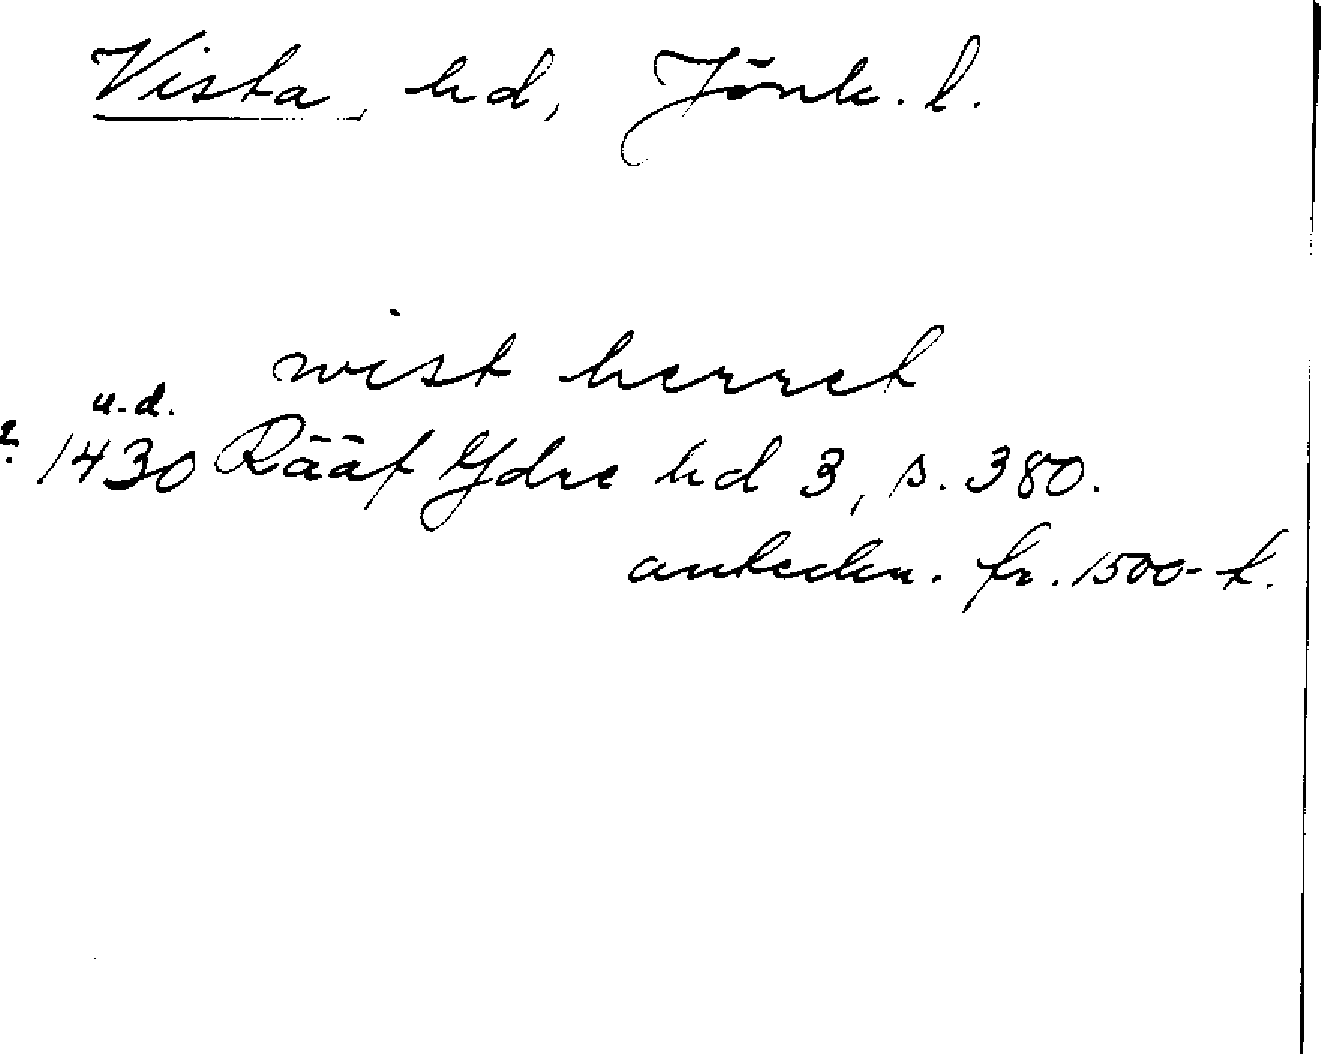 Vista, hd, Jönk. l.
wist herret
u. d.
? 1430 Rääf Ydre hd 3, s. 380.
anteckn. fr. 1500-t.